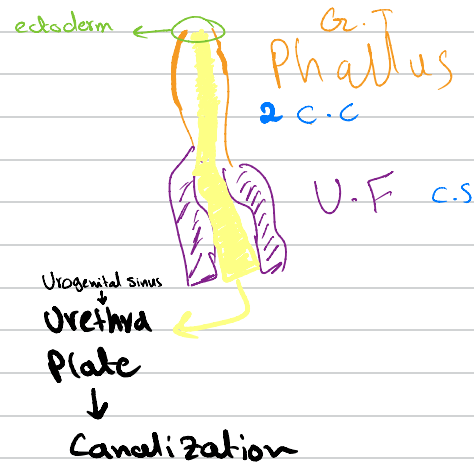 ectoderm
G.T
Phallus
2 C.C
U.F
C.S
Urogenital sinus
Urethra
Plate
Canalization